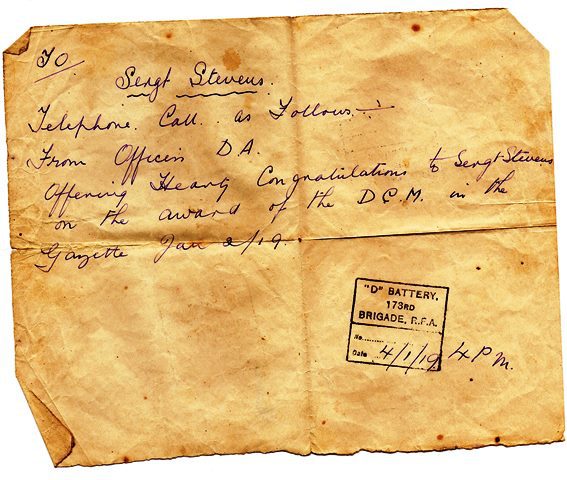 To
Sergt Stevens.
Telephone. Call. as Follows:-
From Officers D A.
Offering Hearty Congratulations to Sergt Stevens
on the award of the D.C.M. in the
Gazette Jan 2/19.
"D" BATTERY,
173RD
BRIGADE, R.F.A.
No.
Date 4/1/19 4 P m.